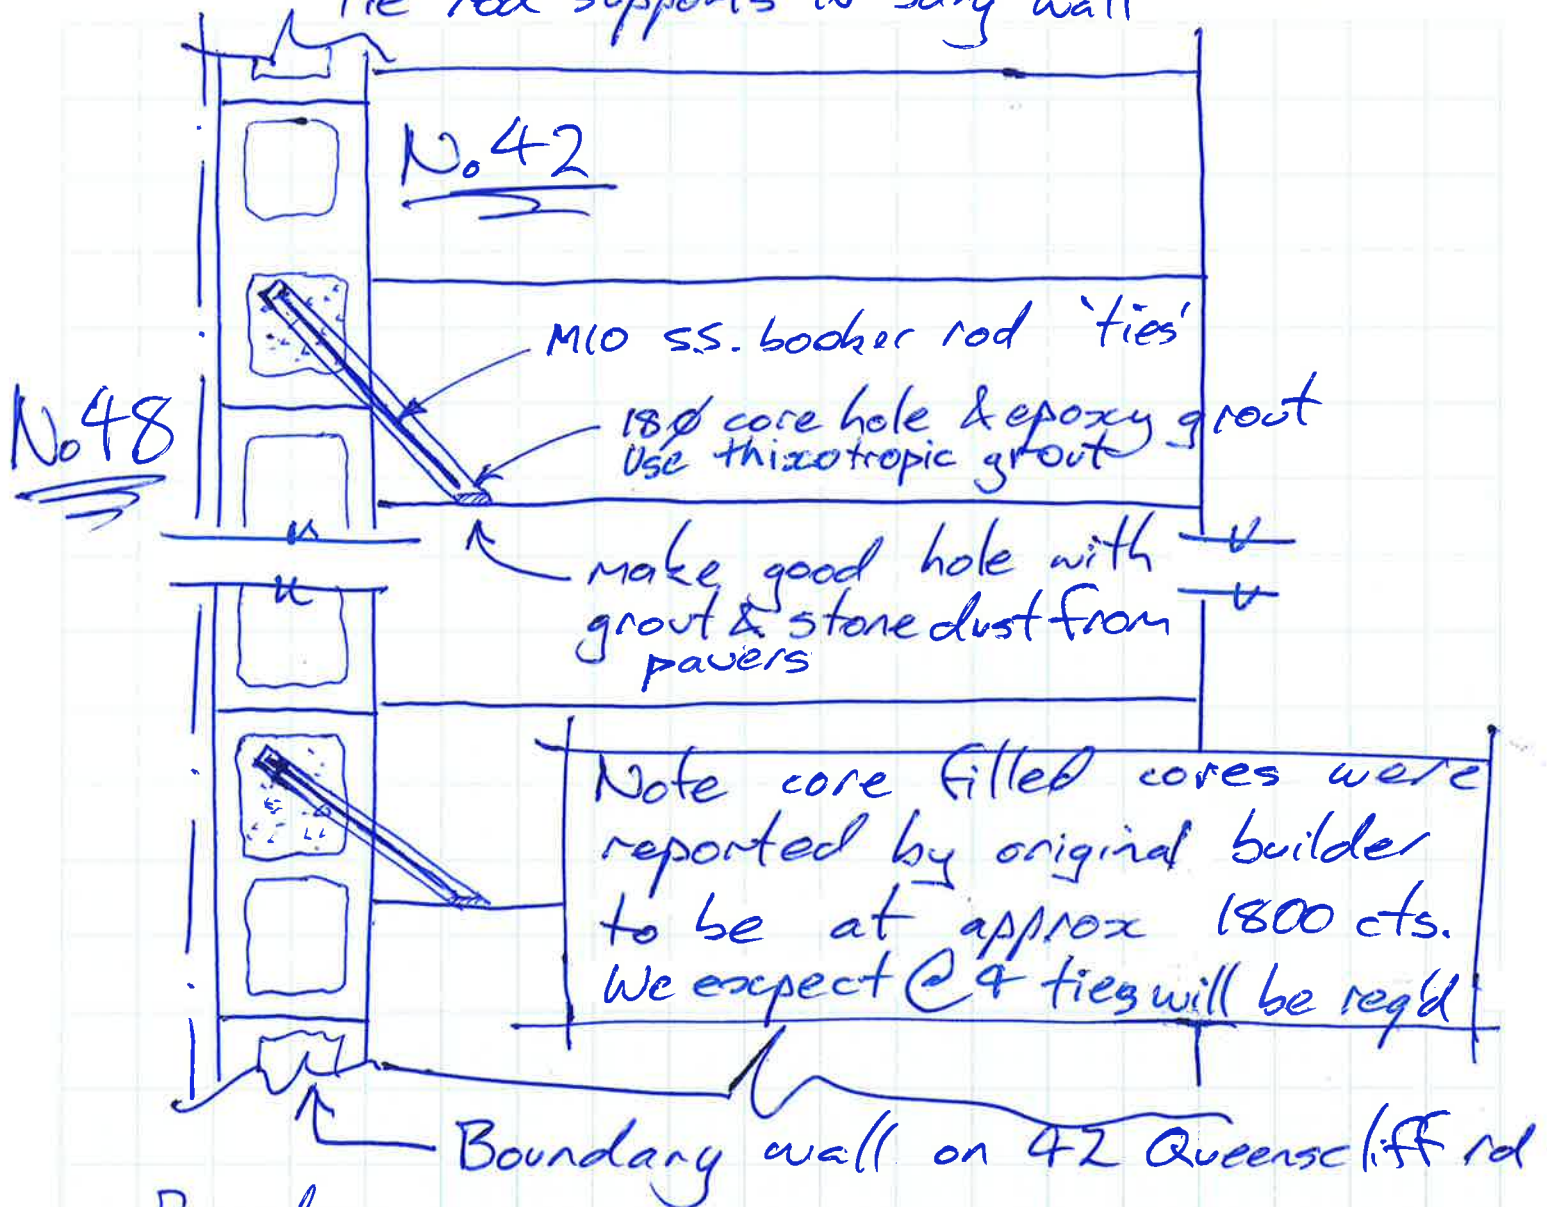 Tie rod supports in bdry wall
No 42
M10 s.s. booker rod 'ties'
18ø core hole & epoxy grout
Use thixotropic grout
No 48
make good hole with
grout & stone dust from
pavers
Note core filled cores were
reported by original builder
to be at approx 1800 cts.
We expect @ 4 ties will be req'd
Boundary wall on 42 Queenscliff rd